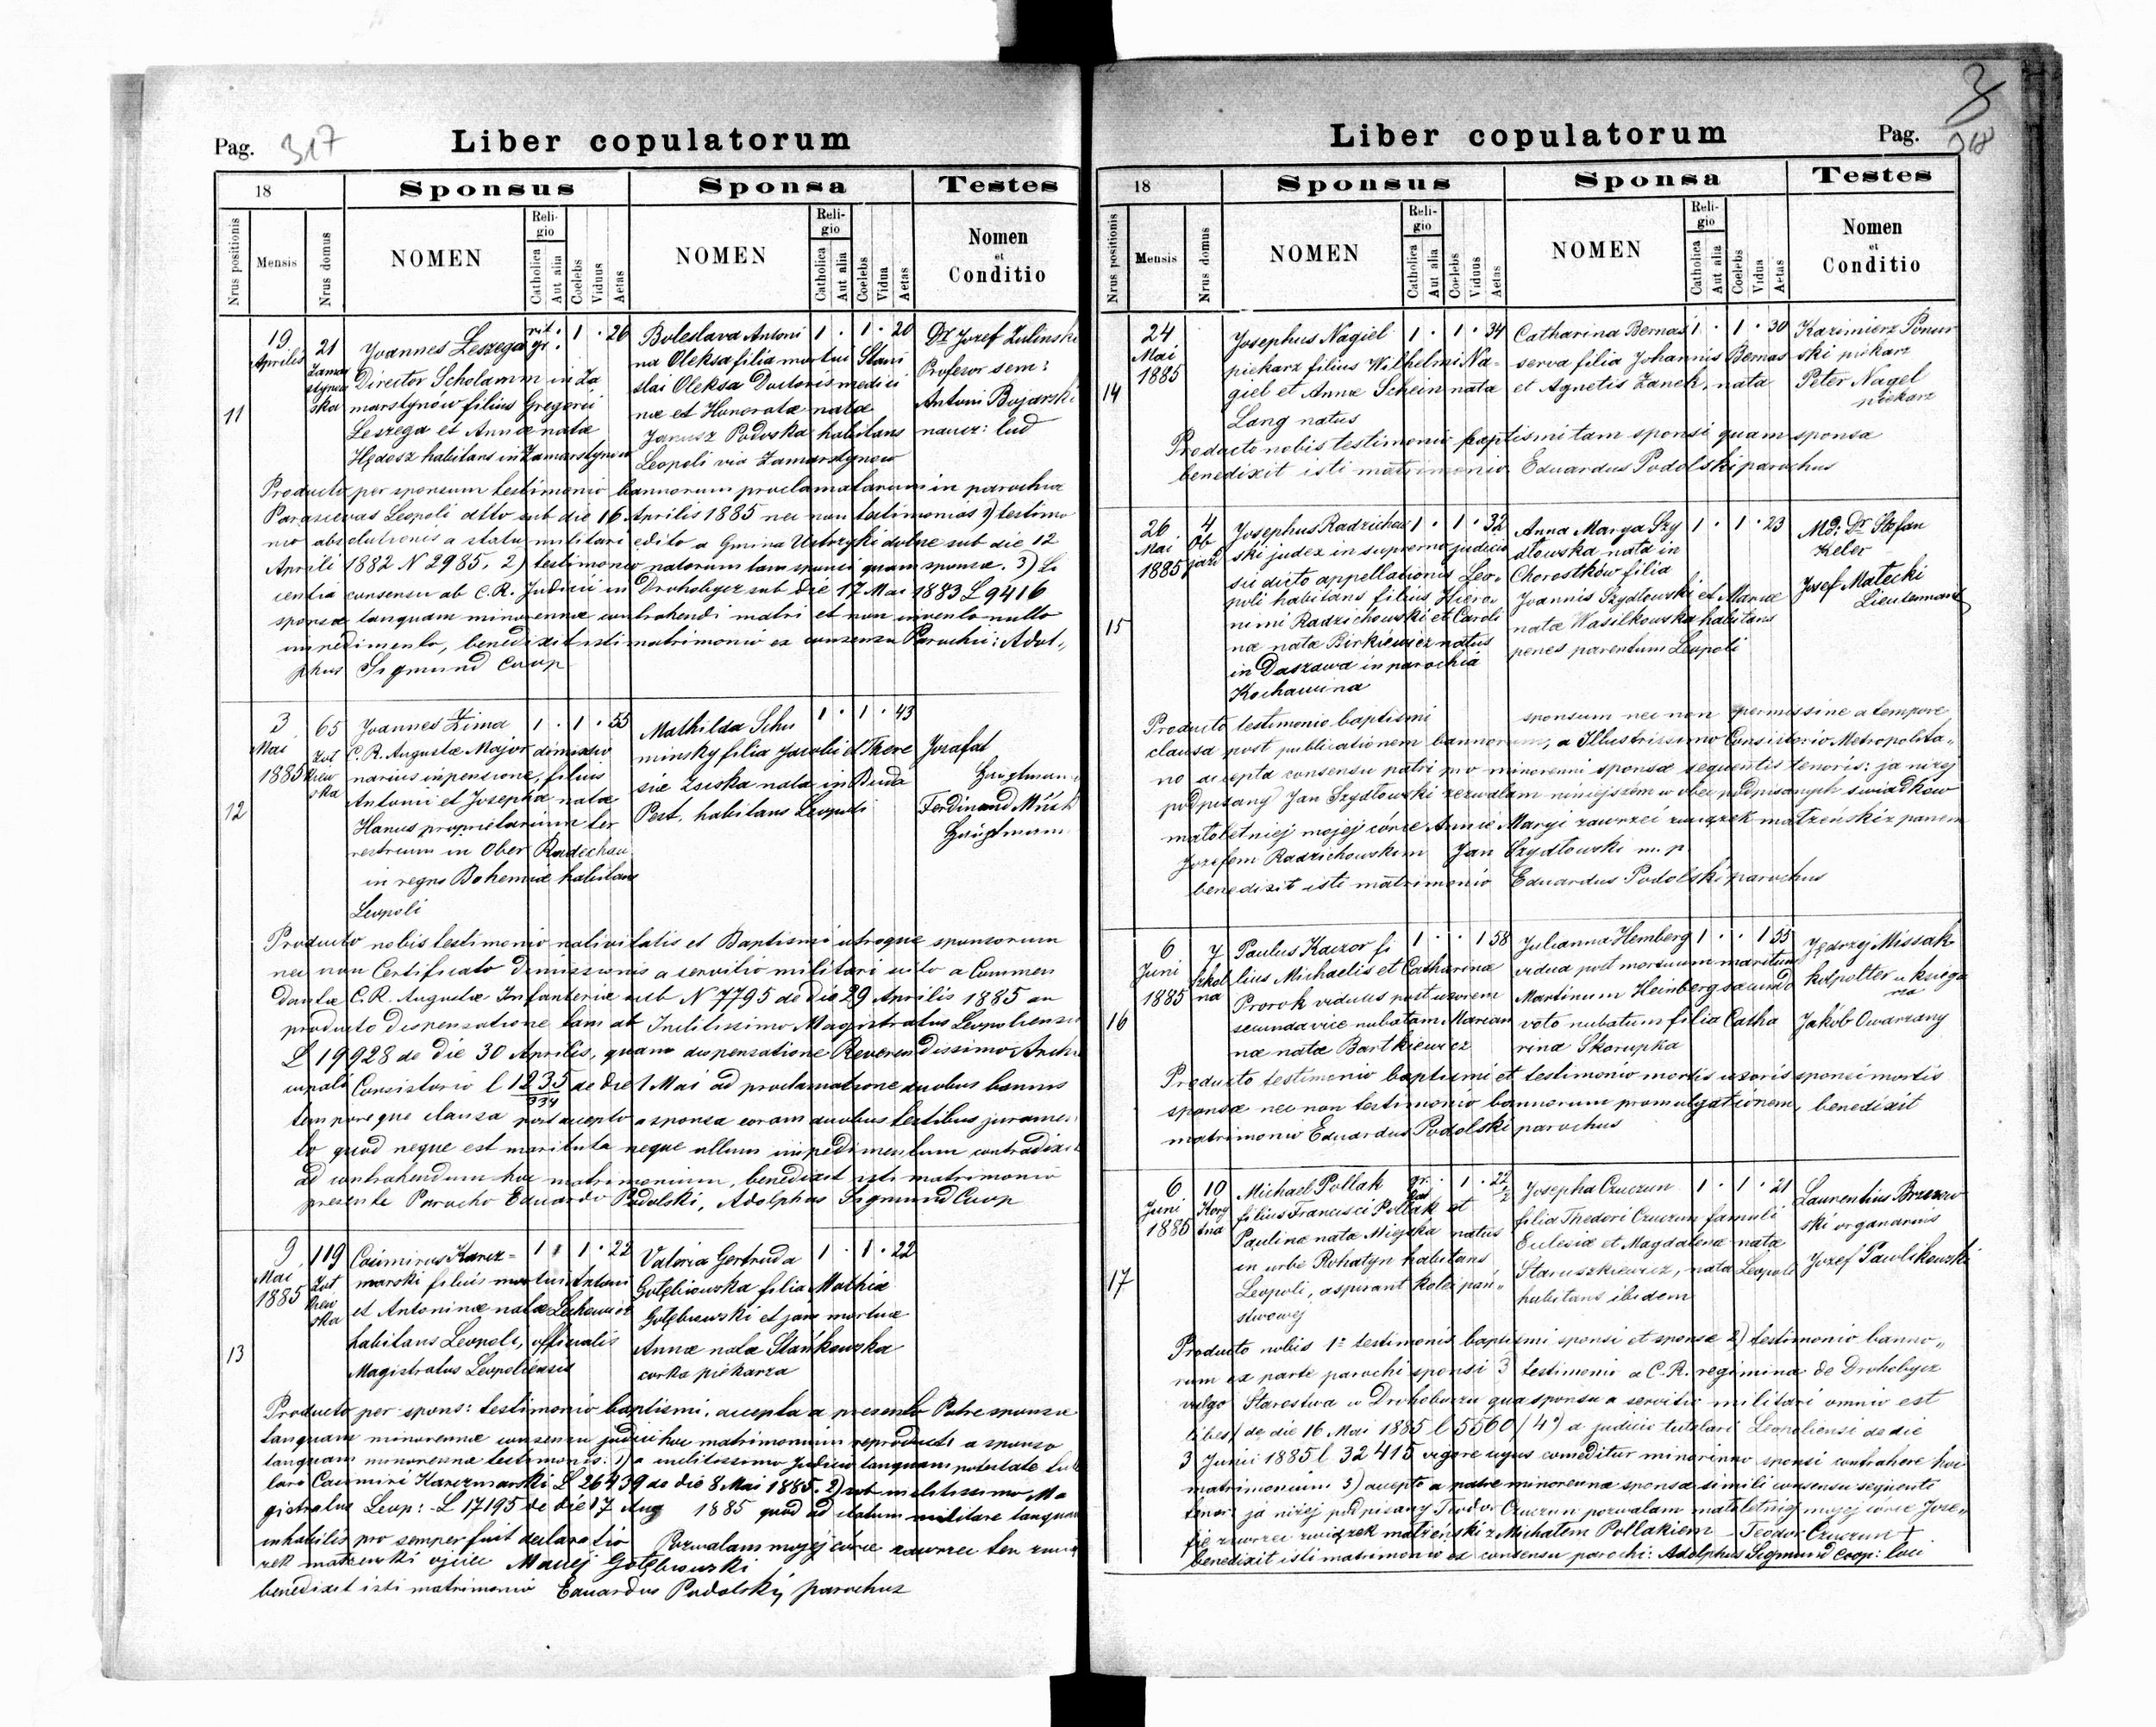 Pag. 317
Liber copulatorum
18
Sponsus
Sponsa
Testes
Nrus positionis
Mensis
Nrus domus
NOMEN
Religio
Catholica
Aut alia
Coelebs
Viduus
Aetas
NOMEN
Religio
Catholica
Aut alia
Coelebs
Vidua
Aetas
Nomen et Conditio
11
19 Aprilis
21 Zamarstynowska
Joannes Leszega rit. gr. 1 26
Director Scholarum in Za
marstynów filius Gregorii
Leszega et Annæ natæ
Hędosz habitans in Zamarstynow
Boleslava Antoni 1 1 20
na Oleksa filia mortui Stani
slai Oleksa Doctoris medici
næ et Honoratæ natæ
Janusz Podoska habitans
Leopoli via Zamarstynow
Dr Jozef Zulinski
Profesor sem:
Antoni Bojarski
naucz: lud
Producto per sponsum testimonio bannorum proclamatarum in parochia
Parascevas Leopoli dtto sub die 16 Aprilis 1885 nec non testimonios 1) testimo
nio absolutionis a statu militari edito a Gmina Ustrzyki dolne sub die 12
Aprili 1882 N 2985. 2) testimonio natorum tam sponsi quam sponsæ. 3) Li
centia consensu ab C.R. Judicii in Drohobycz sub die 17 Mai 1883 L 9416
sponsæ tanquam minorennæ contrahendi matri et non invento nullo
impedimento, benedixit isti matrimonio ex consensu Parochii: Adol„
phus Sigmund Coop
12
3 Mai 1885
65 Żołkiewska
Joannes Zima 1 1 55
C.R. Augustæ Major dimissio
narius in pensione, filius
Antonii et Josephæ natæ
Hanus proprietarium ter
restrium in Ober Radechau
in regno Bohemiæ habitans
Leopoli
Mathilda Schu 1 1 43
minsky filia Jacobi et There
siæ Zsiska nata in Buda
Pest, habitans Leopoli
Jozafat
Hauptmann
Ferdinand
Hauptmann
Producto nobis testimonio nativitatis et Baptismi utroque sponsorum
nec non Certificato dimissionis a servitio militari cito a Commen
dantæ C.R. Augustæ Infanteriæ sub N 7795 de die 29 Aprilis 1885 an
producto dispensatione tam ab Inclitissimo Magistratus Leopoliensi
L 19928 de die 30 Aprilis, quam dispensatione Reverendissimo Archi
cupali Consistorio l 1235/334 de die 1 Mai ad proclamatione duobus bannis
temporeque clausa post accepto a sponsa coram duobus testibus juramen
to quod neque est maritata neque ullum impedimentum contradixit
ad contrahendum hoc matrimonium, benedixit isti matrimonio
presente Parocho Eduardo Podolski, Adolphus Sigmund Coop
13
9 Mai 1885
119 Żołkiewska
Casimirus Karcz- 1 1 22
marski filius mortui Antoni
et Antoninæ natæ Lechowicz
habitans Leopoli, officialis
Magistratus Leopoliensis
Valeria Gertruda 1 1 22
Gołębiowska filia Mathiæ
Gołębiowski et jam mortuæ
Annæ nata Stańkowska
corka piekarza
Producto per spons: testimonio baptismi, accepta a presento Patre sponsæ
tanquam minorennæ consensu judicii hoc matrimonium reproducti a sponso
tanquam minorenna testimonis: 1) a inclitissimo Judicio tanquam potestate tute
lari Casimiri Karczmarski L 26439 de die 8 Mai 1885. 2) sub inclitissimo Ma
gistratus Leop: L 17195 de die 17 Aug 1885 quod ad statum militare tanquam
inhabilis pro semper fuit declaratio Pozwalam mojej córce zawrzec ten zwią
zek małżenski ojciec Maciej Gołębiowski
benedixit isti matrimonio Eduardus Podolski, parochus
Liber copulatorum
Pag. 318
18
Sponsus
Sponsa
Testes
Nrus positionis
Mensis
Nrus domus
NOMEN
Religio
Catholica
Aut alia
Coelebs
Viduus
Aetas
NOMEN
Religio
Catholica
Aut alia
Coelebs
Vidua
Aetas
Nomen et Conditio
14
24 Mai 1885
Josephus Nagiel 1 1 34
piekarz filius Wilhelmi Na-
giel et Annæ Schein nata
Lang natus
Catharina Bernaś 1 1 30
serva filia Johannis Bernaś
et Agnetis Zanek, nata
Kazimierz Poniń
ski piekarz
Peter Nagel
piekarz
Producto nobis testimonio baptismi tam sponsi quam sponsa
benedixit isti matrimonio Eduardus Podolski parochus
15
26 Mai 1885
4 Objazd
Josephus Radzichow 1 1 32
ski judex in supremo judicio
sic dicto appellationis Leo„
poli habitans filius Hiero„
nimi Radzichowski et Caroli
na nata Birkiewicz natus
in Daszawa in parochia
Kochawina
Anna Marya Szy 1 1 23
dłowska nata in
Chorostków filia
Joannis Szydłowski et Mariæ
natæ Wasilkowska habitans
penes parentum Leopoli
Md. Dr Stefan
Keler
Josef Małecki
Lieutenant
Producto testimonio baptismi sponsum nec non permissine a tempore
clausa post publicationem bannorum, a Illustrissimo Consistorio Metropolita„
no accepta consensu patri pro minorenni sponsæ sequentis tenoris: ja niżej
podpisany Jan Szydłowski zezwalam niniejszem w obec podpisanych świadków
małoletniej mojej córce Annie Maryi zawrzeć związek małżeński z panem
Jozefem Radzichowskim Jan Szydłowski m. p.
benedixit isti matrimonio Eduardus Podolski parochus
16
6 Juni 1885
7 Szkolna
Paulus Kaczor fi 1 1 58
lius Michaelis et Catharina
Prorok viduus post uxorem
secunda vice nubatam Marian
næ natæ Bartkiewicz
Julianna Hemberg 1 1 55
vidua post mortuum maritum
Martinum Heinberg secundo
voto nubatum filia Catha
rinæ Skorupka
Jędrzej Missak
kolpolter u księga
rza
Jakób Owarzany
Producto testimonio baptismi et testimonio mortis uxoris sponsi mortis
sponsæ nec non testimonio bannorum promulgationem, benedixit
matrimonio Eduardus Podolski parochus
17
6 Juni 1885
10
Michael Pollak gr. 1 22
filius Francisci Pollak et
Paulinæ nata Miejska natus
in urbe Rohatyn habitans
Leopoli, aspirant kolei pań„
stwowej
Josepha Czuczun 1 1 21
filia Thedori Czuczun famuli
Eulesiæ et Magdalenæ natæ
Staruszkiewicz, nata Leopoli
habitans ibidem
Laurentius Brzozow
ski organarius
Jozef Pawlikowski
Producto nobis 1º testimonis baptismi sponsi et sponsæ 2) testimonio banno„
rum ex parte parochi sponsi 3) testimoni a C.R. regimina de Drohobycz
vulgo Starostwa w Drohobyczu qua sponsu a servitio militari omnio est
liber/ de die 16 Mai 1885 l 5560/ 4º) a judicio tutelari Leopoliensi de die
3 Junii 1885 l 32415 vigore cujus comeditur minorinno sponsi contrahere hoc
matrimonium 5) accepto a patre minorenna sponsa simili consensu sequenti
tenor: ja niżej podpisany Teodor Czuczun pozwalam małoletniej mojej córce Joze„
fie zawrzec związek małżeński z Michałem Pollakiem – Teodor Czuczun +
benedixit isti matrimonio ex consensu parochi: Adolphus Sigmund Coop: loci